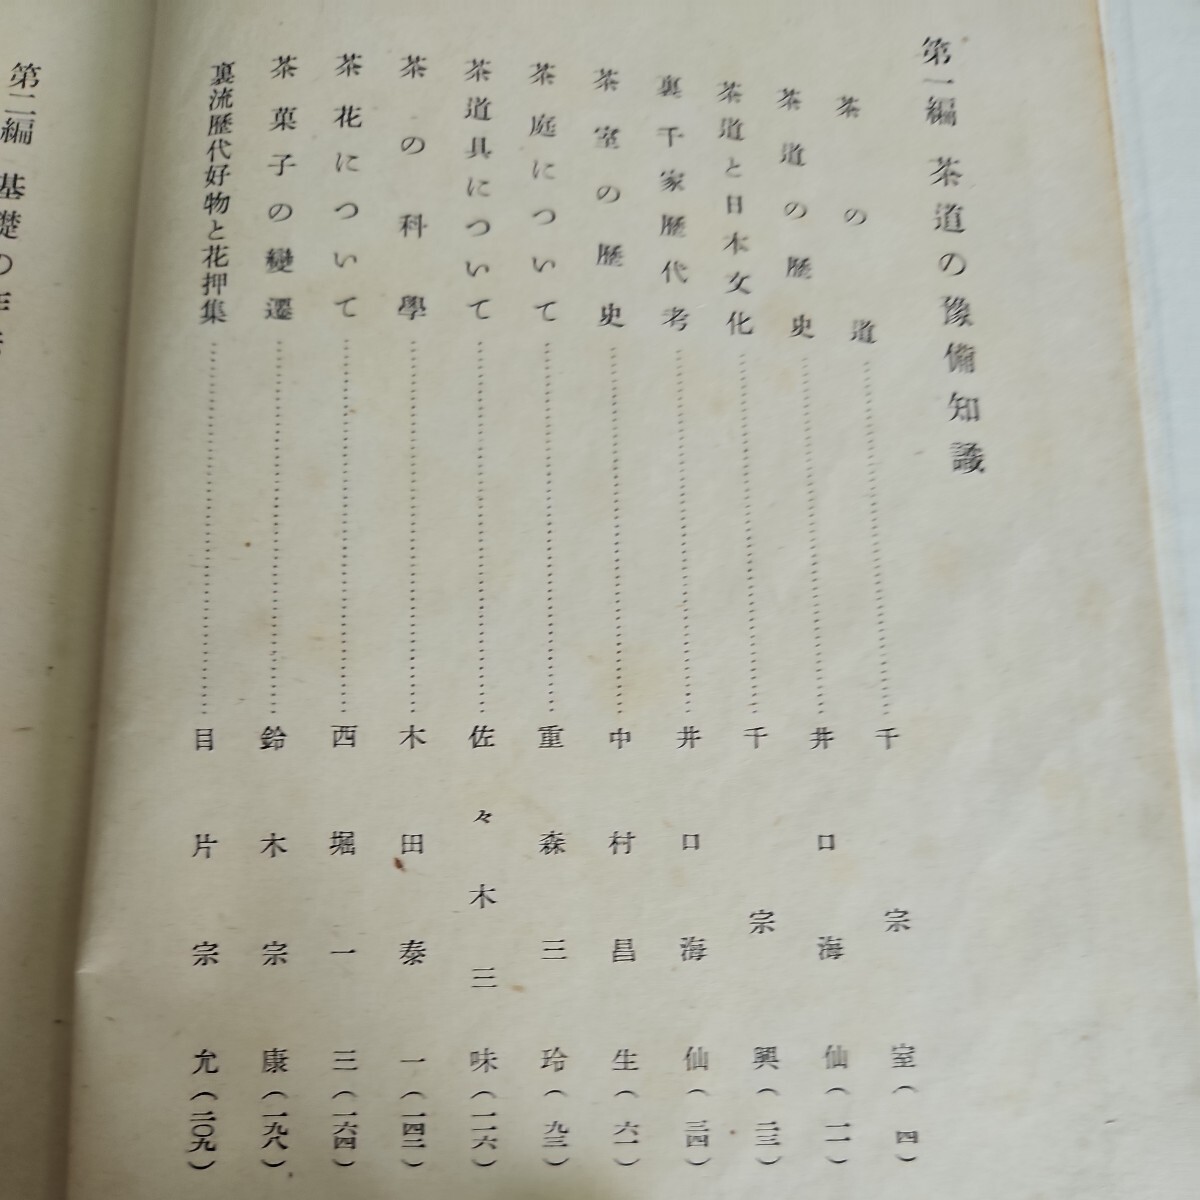 第一編 茶道の豫備知識
茶の道………千宗室(四)
茶道の歷史………井口海仙(一一)
茶道と日本文化………千宗興(二三)
裏千家歷代考………井口海仙(三四)
茶室の歷史………中村昌生(六一)
茶庭について………重森三玲(九三)
茶道具について………佐々木三味(一一六)
茶の科學………木田泰一(一四二)
茶花について………西堀一三(一六四)
茶菓子の變遷………鈴木宗康(一九八)
裏流歷代好物と花押集………目片宗允(二〇九)
第二編 基礎の